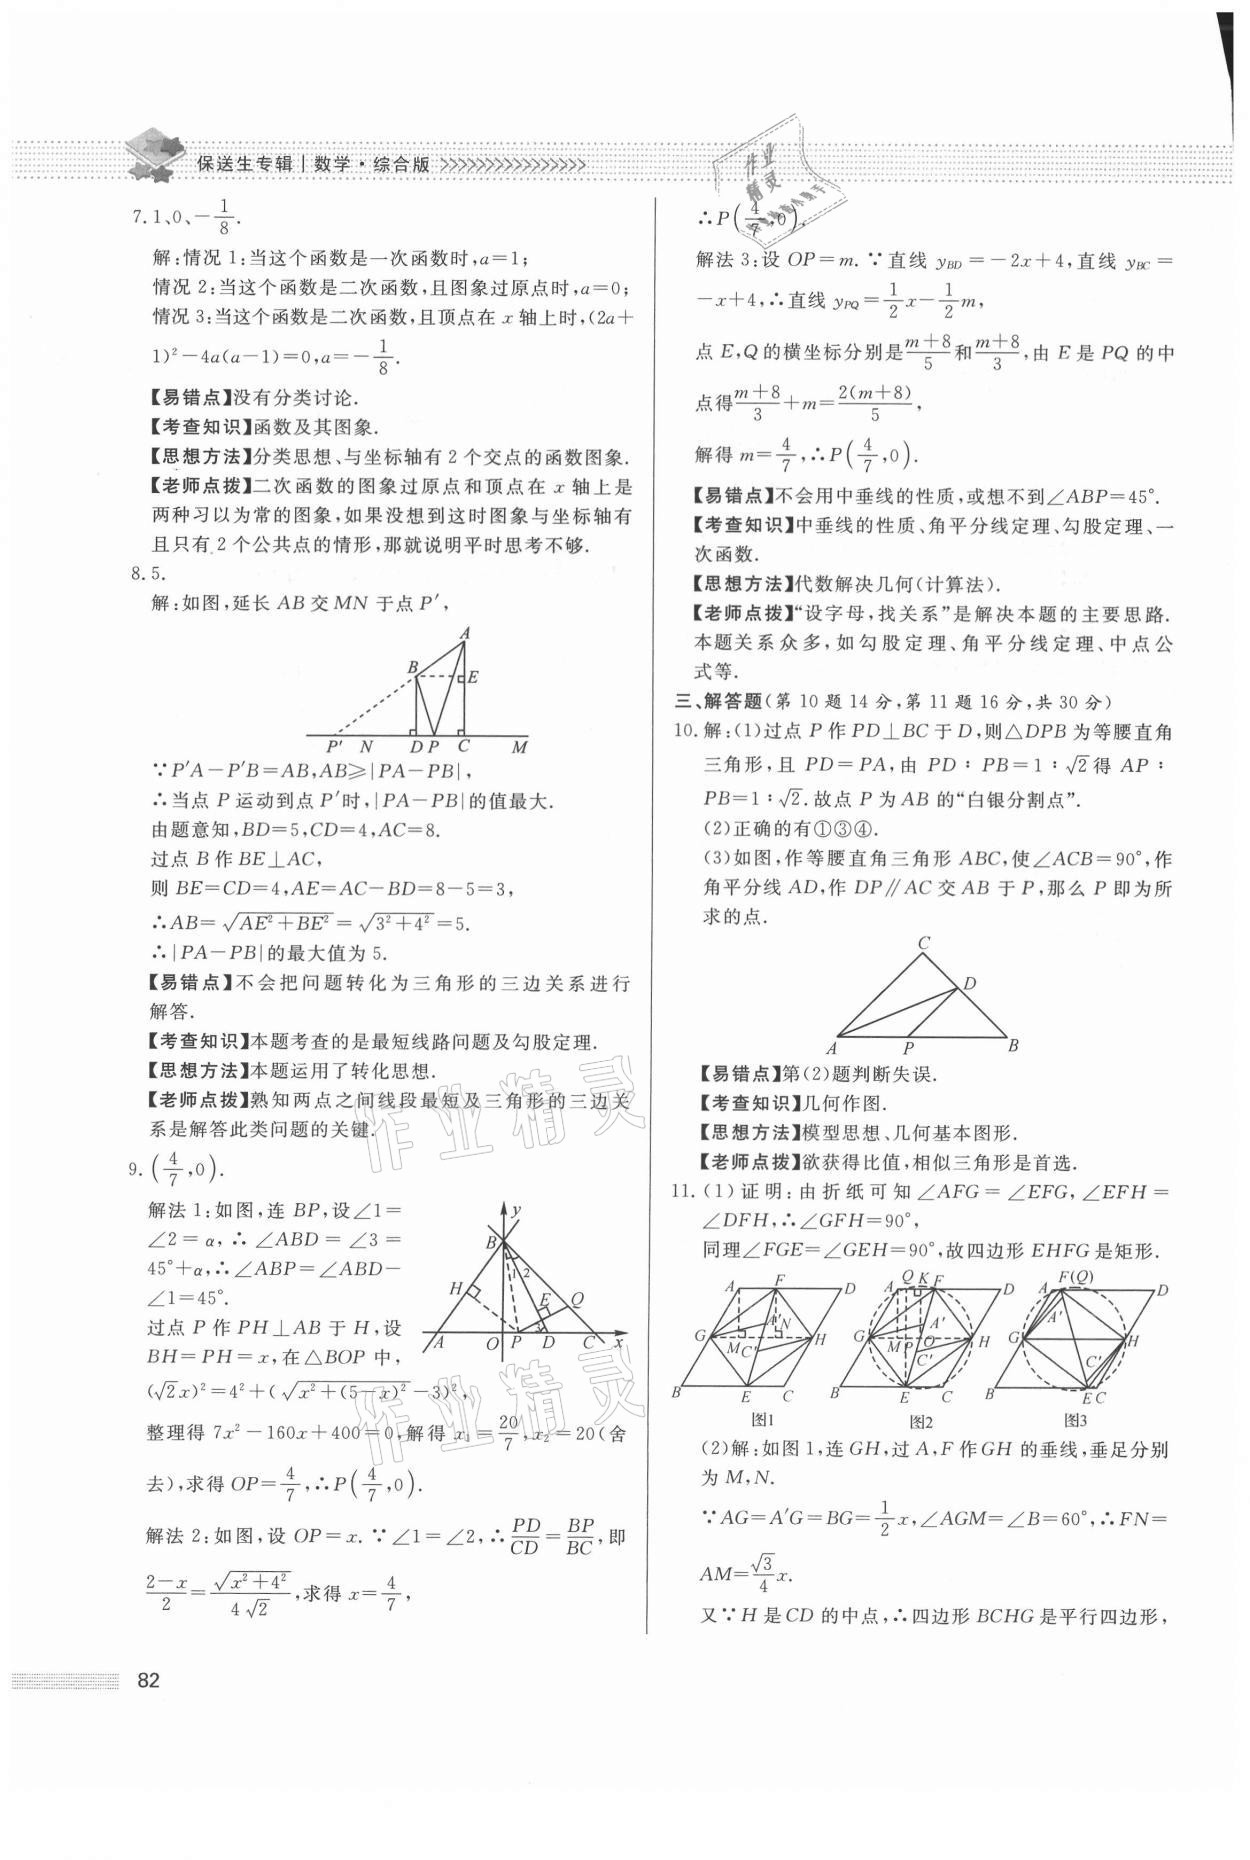 保送生专辑｜数学·综合版 >>>>>>>>>>>>>>>>
7.1、0、−1/8.
解:情况 1:当这个函数是一次函数时,a=1;
情况 2:当这个函数是二次函数,且图象过原点时,a=0;
情况 3:当这个函数是二次函数,且顶点在 x 轴上时,(2a+
1)²−4a(a−1)=0,a=−1/8.
【易错点】没有分类讨论.
【考查知识】函数及其图象.
【思想方法】分类思想、与坐标轴有 2 个交点的函数图象.
【老师点拨】二次函数的图象过原点和顶点在 x 轴上是
两种习以为常的图象,如果没想到这时图象与坐标轴有
且只有 2 个公共点的情形,那就说明平时思考不够.
8.5.
解:如图,延长 AB 交 MN 于点 P′,
A
B
E
P′ N D P C M
∵P′A−P′B=AB,AB≥|PA−PB|,
∴当点 P 运动到点 P′时,|PA−PB|的值最大.
由题意知,BD=5,CD=4,AC=8.
过点 B 作 BE⊥AC,
则 BE=CD=4,AE=AC−BD=8−5=3,
∴AB=√(AE²+BE²)=√(3²+4²)=5.
∴|PA−PB|的最大值为 5.
【易错点】不会把问题转化为三角形的三边关系进行
解答.
【考查知识】本题考查的是最短线路问题及勾股定理.
【思想方法】本题运用了转化思想.
【老师点拨】熟知两点之间线段最短及三角形的三边关
系是解答此类问题的关键.
9.(4/7,0).
解法 1:如图,连 BP,设∠1=
∠2=α,∴∠ABD=∠3=
45°+α,∴∠ABP=∠ABD−
∠1=45°.
过点 P 作 PH⊥AB 于 H,设
BH=PH=x,在△BOP 中,
y
B
1 2
H
E Q
3
A O P D C x
(√2x)²=4²+(√(x²+(5−x)²)−3)²,
整理得 7x²−160x+400=0,解得 x₁=20/7,x₂=20(舍
去),求得 OP=4/7,∴P(4/7,0).
解法 2:如图,设 OP=x.∵∠1=∠2,∴PD/CD=BP/BC,即
(2−x)/2=√(x²+4²)/(4√2),求得 x=4/7,
82
∴P(4/7,0).
解法 3:设 OP=m.∵直线 y_BD=−2x+4,直线 y_BC=
−x+4,∴直线 y_PQ=1/2x−1/2m,
点 E,Q 的横坐标分别是(m+8)/5和(m+8)/3,由 E 是 PQ 的中
点得(m+8)/3+m=2(m+8)/5,
解得 m=4/7,∴P(4/7,0).
【易错点】不会用中垂线的性质,或想不到∠ABP=45°.
【考查知识】中垂线的性质、角平分线定理、勾股定理、一
次函数.
【思想方法】代数解决几何(计算法).
【老师点拨】“设字母,找关系”是解决本题的主要思路.
本题关系众多,如勾股定理、角平分线定理、中点公
式等.
三、解答题(第 10 题 14 分,第 11 题 16 分,共 30 分)
10.解:(1)过点 P 作 PD⊥BC 于 D,则△DPB 为等腰直角
三角形,且 PD=PA,由 PD∶PB=1∶√2得 AP∶
PB=1∶√2.故点 P 为 AB 的“白银分割点”.
(2)正确的有①③④.
(3)如图,作等腰直角三角形 ABC,使∠ACB=90°,作
角平分线 AD,作 DP∥AC 交 AB 于 P,那么 P 即为所
求的点.
C
D
A P B
【易错点】第(2)题判断失误.
【考查知识】几何作图.
【思想方法】模型思想、几何基本图形.
【老师点拨】欲获得比值,相似三角形是首选.
11.(1)证明:由折纸可知∠AFG=∠EFG,∠EFH=
∠DFH,∴∠GFH=90°,
同理∠FGE=∠GEH=90°,故四边形 EHFG 是矩形.
A F D A Q K F D A F(Q) D
G A′ N M C′ H G A′ M P O C′ H G A′ C′ H
B E C B E C B E C
图1 图2 图3
(2)解:如图 1,连 GH,过 A,F 作 GH 的垂线,垂足分别
为 M,N.
∵AG=A′G=BG=1/2x,∠AGM=∠B=60°,∴FN=
AM=√3/4x.
又∵H 是 CD 的中点,∴四边形 BCHG 是平行四边形,
作业精灵
作业精灵
作业精灵